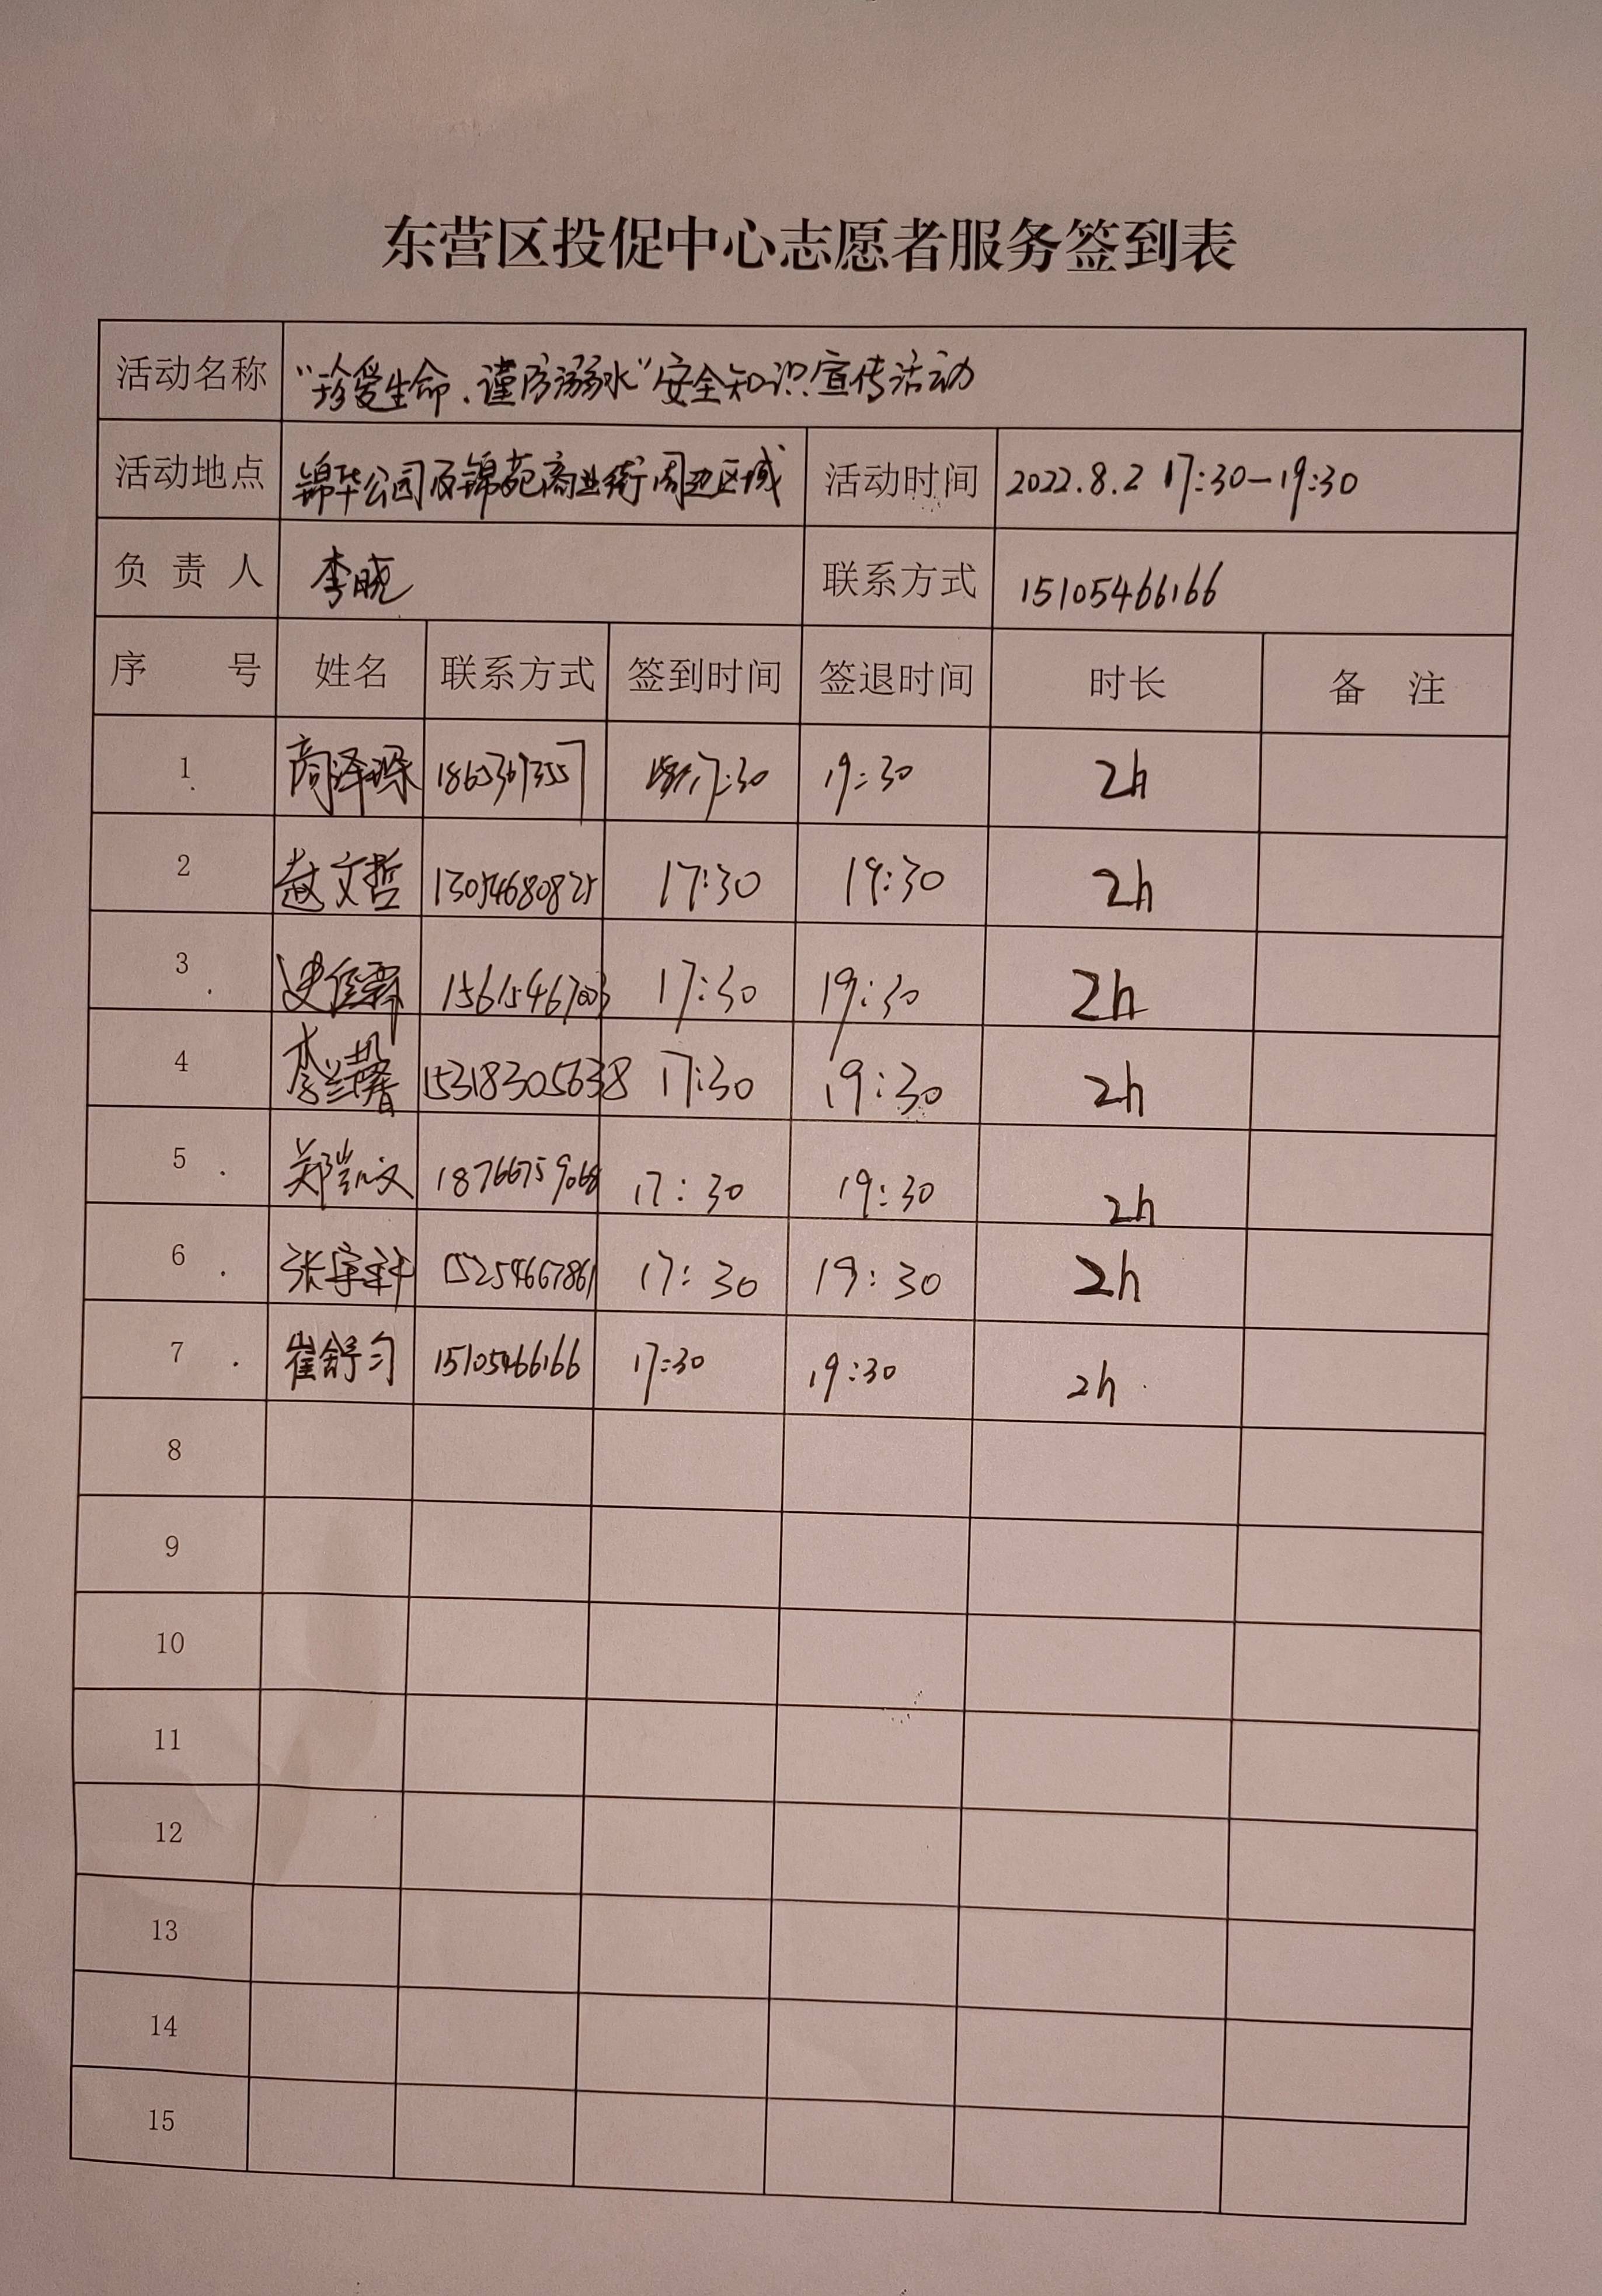 东营区投促中心志愿者服务签到表
活动名称 “珍爱生命.谨防溺水”安全知识宣传活动
活动地点 锦华公园及锦苑商业街周边区域 活动时间 2022.8.2 17:30-19:30
负责人 李晓 联系方式 15105466166
序号 姓名 联系方式 签到时间 签退时间 时长 备注
1 17:30 19:30 2h
2 赵文哲 13054680825 17:30 19:30 2h
3 17:30 19:30 2h
4 李兰馨 15318305638 17:30 19:30 2h
5 郑凯文 18766759068 17:30 19:30 2h
6 15254667861 17:30 19:30 2h
7 崔舒匀 15105466166 17:30 19:30 2h
8
9
10
11
12
13
14
15